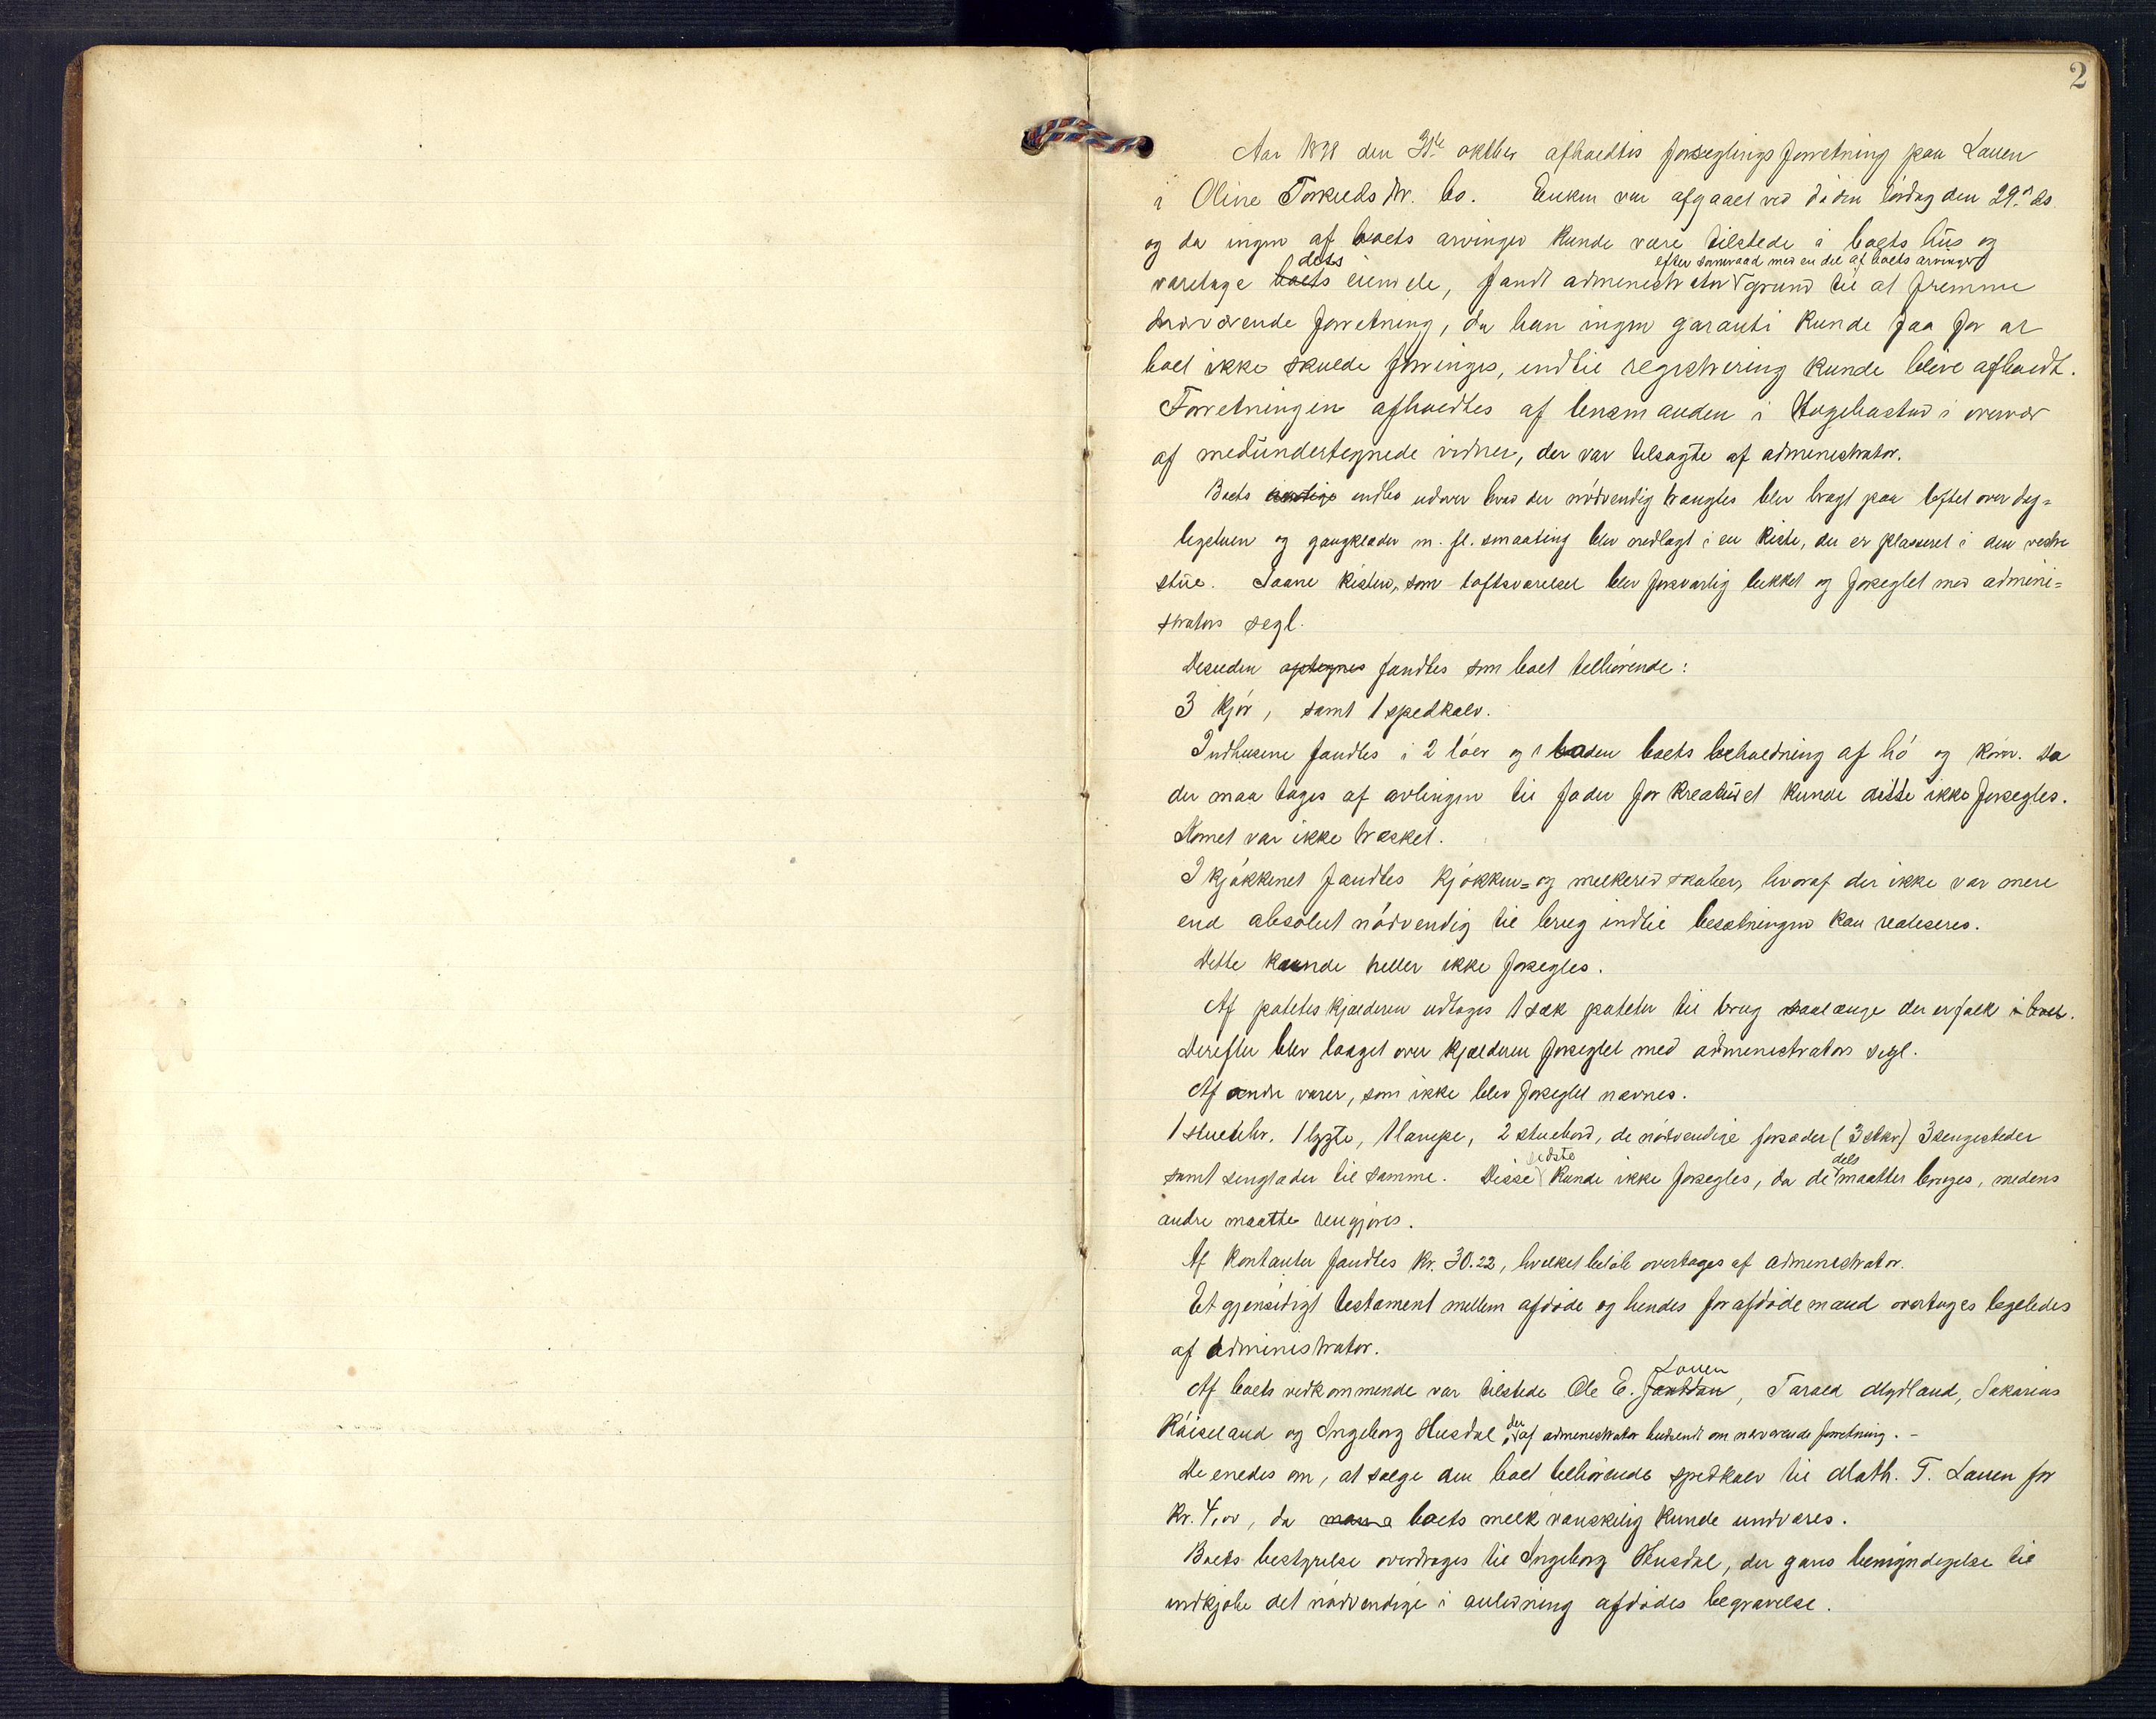 2
Aar 1898 den 31te oktber afholdtes forseglingsforretning paa Lauen
i Oline Torkildsdtr. bo. Enken var afgaaet ved døden lørdag den 29de ds.
og da ingen af boets arvinger kunde være tilstede i boets hus og
efter samraad med en del af boets arvinger
varetage boets dets eiendele, fandt administrator grund til at fremme
nærværende forretning, da han ingen garanti kunde faa for at
boet ikke skulde forringes, indtil registrering kunde blive afholdt.
Forretningen afholdtes af lensmanden i Hægebostad i overvær
af medundertegnede vidner, der var tilsagte af administrator.
Boets indbo udover hvad der nødvendig trængtes blev bragt paa loftet over dag=
ligstuen og gangklæder m. fl. smaating blev nedlagt i en kiste, der er plasseret i den vestre
stue. Saavel kisten, som loftsværelset blev forsvarlig lukket og forseglet med admini=
strators segl.
Desuden optegnes fandtes som boet tilhørende:
3 kjør, samt 1 spedkalv.
I udhusene fandtes i 2 løer og 1 boden boets beholdning af hø og korn. Da
der maa tages af avlingen til foder for kreaturet kunde dette ikke forsegles.
Kornet var ikke træsket.
I kjøkkenet fandtes kjøkken= og melkeredskaber, hvoraf der ikke var mere
end absolut nødvendig til brug indtil besætningen kan realiseres.
Dette kunde heller ikke forsegles.
Af potetes kjælderen udtoges 1 sæk poteter til brug saalænge der er folk i boet.
Derefter blev laaget over kjælderen forseglet med administrators segl.
Af andre varer, som ikke blev forseglet nævnes.
1 stueuhr. 1 lygte, 1 lampe, 2 stuebord, de nødvendige forsæder (3 stkr) 3 sengesteder
samt sengklæder til samme. Disse sidste kunde ikke forsegles, da de dels maatte bruges, medens
andre maatte rengjøres.
Af kontanter fandtes kr. 30.22, hvilket beløb overtages af administrator.
Et gjensidigt testament mellem afdøde og hendes forafdøde mand overtages ligeledes
af administrator.
Af boets vedkommende var tilstede Ole E. Lauen, Tarald Mydland, Sakarias
Røiseland og Ingeborg Husdal der af administrator budsendt om nærværende forretning. –
De enedes om, at sælge den boet tilhørende spedkalv til Math. T. Lauen for
kr. 4,00, da boets melk vanskelig kunde undværes.
Boets bestyrelse overdrages til Ingeborg Husdal, der gives bemyndigelse til
indkjøbe det nødvendige i anledning afdødes begravelse.